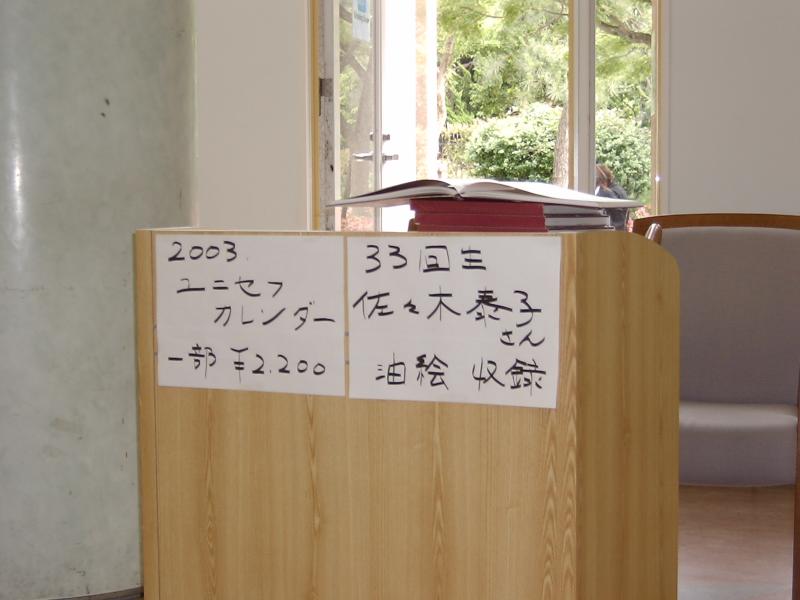 2003
ユニセフ
カレンダー
一部 ¥2.200
33回生
佐々木泰子
さん
油絵 収録